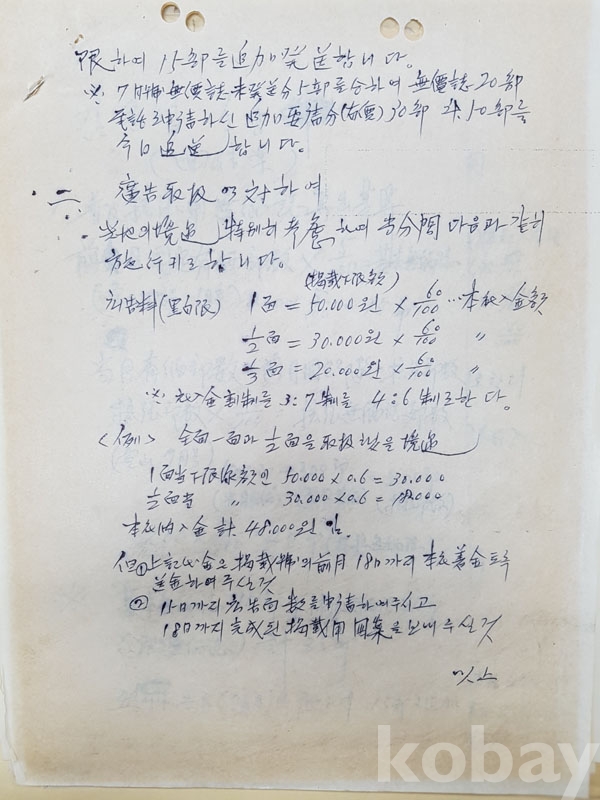 限하여 15部를 追加発送합니다.
※ 7月号 無價誌 未発送分 5部를 合하여 無價誌 20部
申請하신 追加要請分(有價) 30部 50部를
今日 追送합니다.
二. 廣告取扱에 対하여
의 境遇 特別히 考慮하여 当分間 다음과 같이
施行키로 합니다.
(掲載下限額)
広告料(黑白限) 1面 = 50.000원 × 60/100 … 本社入金額
1/2面 = 30.000원 × 60/100 〃
1/3面 = 20.000원 × 60/100 〃
※ 入金割制를 3:7制를 4:6制로 한다.
<例> 全面一面과 1/2面을 取扱했을 境遇
1面当 下限額인 50.000 × 0.6 = 30.000
1/2面当 〃 30.000 × 0.6 = 18.000
本社納入金 計 48.000원 임.
但 ① 上記 金은 掲載号의 前月 18日까지 本社 着金토록
送金하여 주실것
② 15日까지 広告面数를 申請하여주시고
18日까지 完成된 掲載用 図案을 보내주실것
以上
kobay